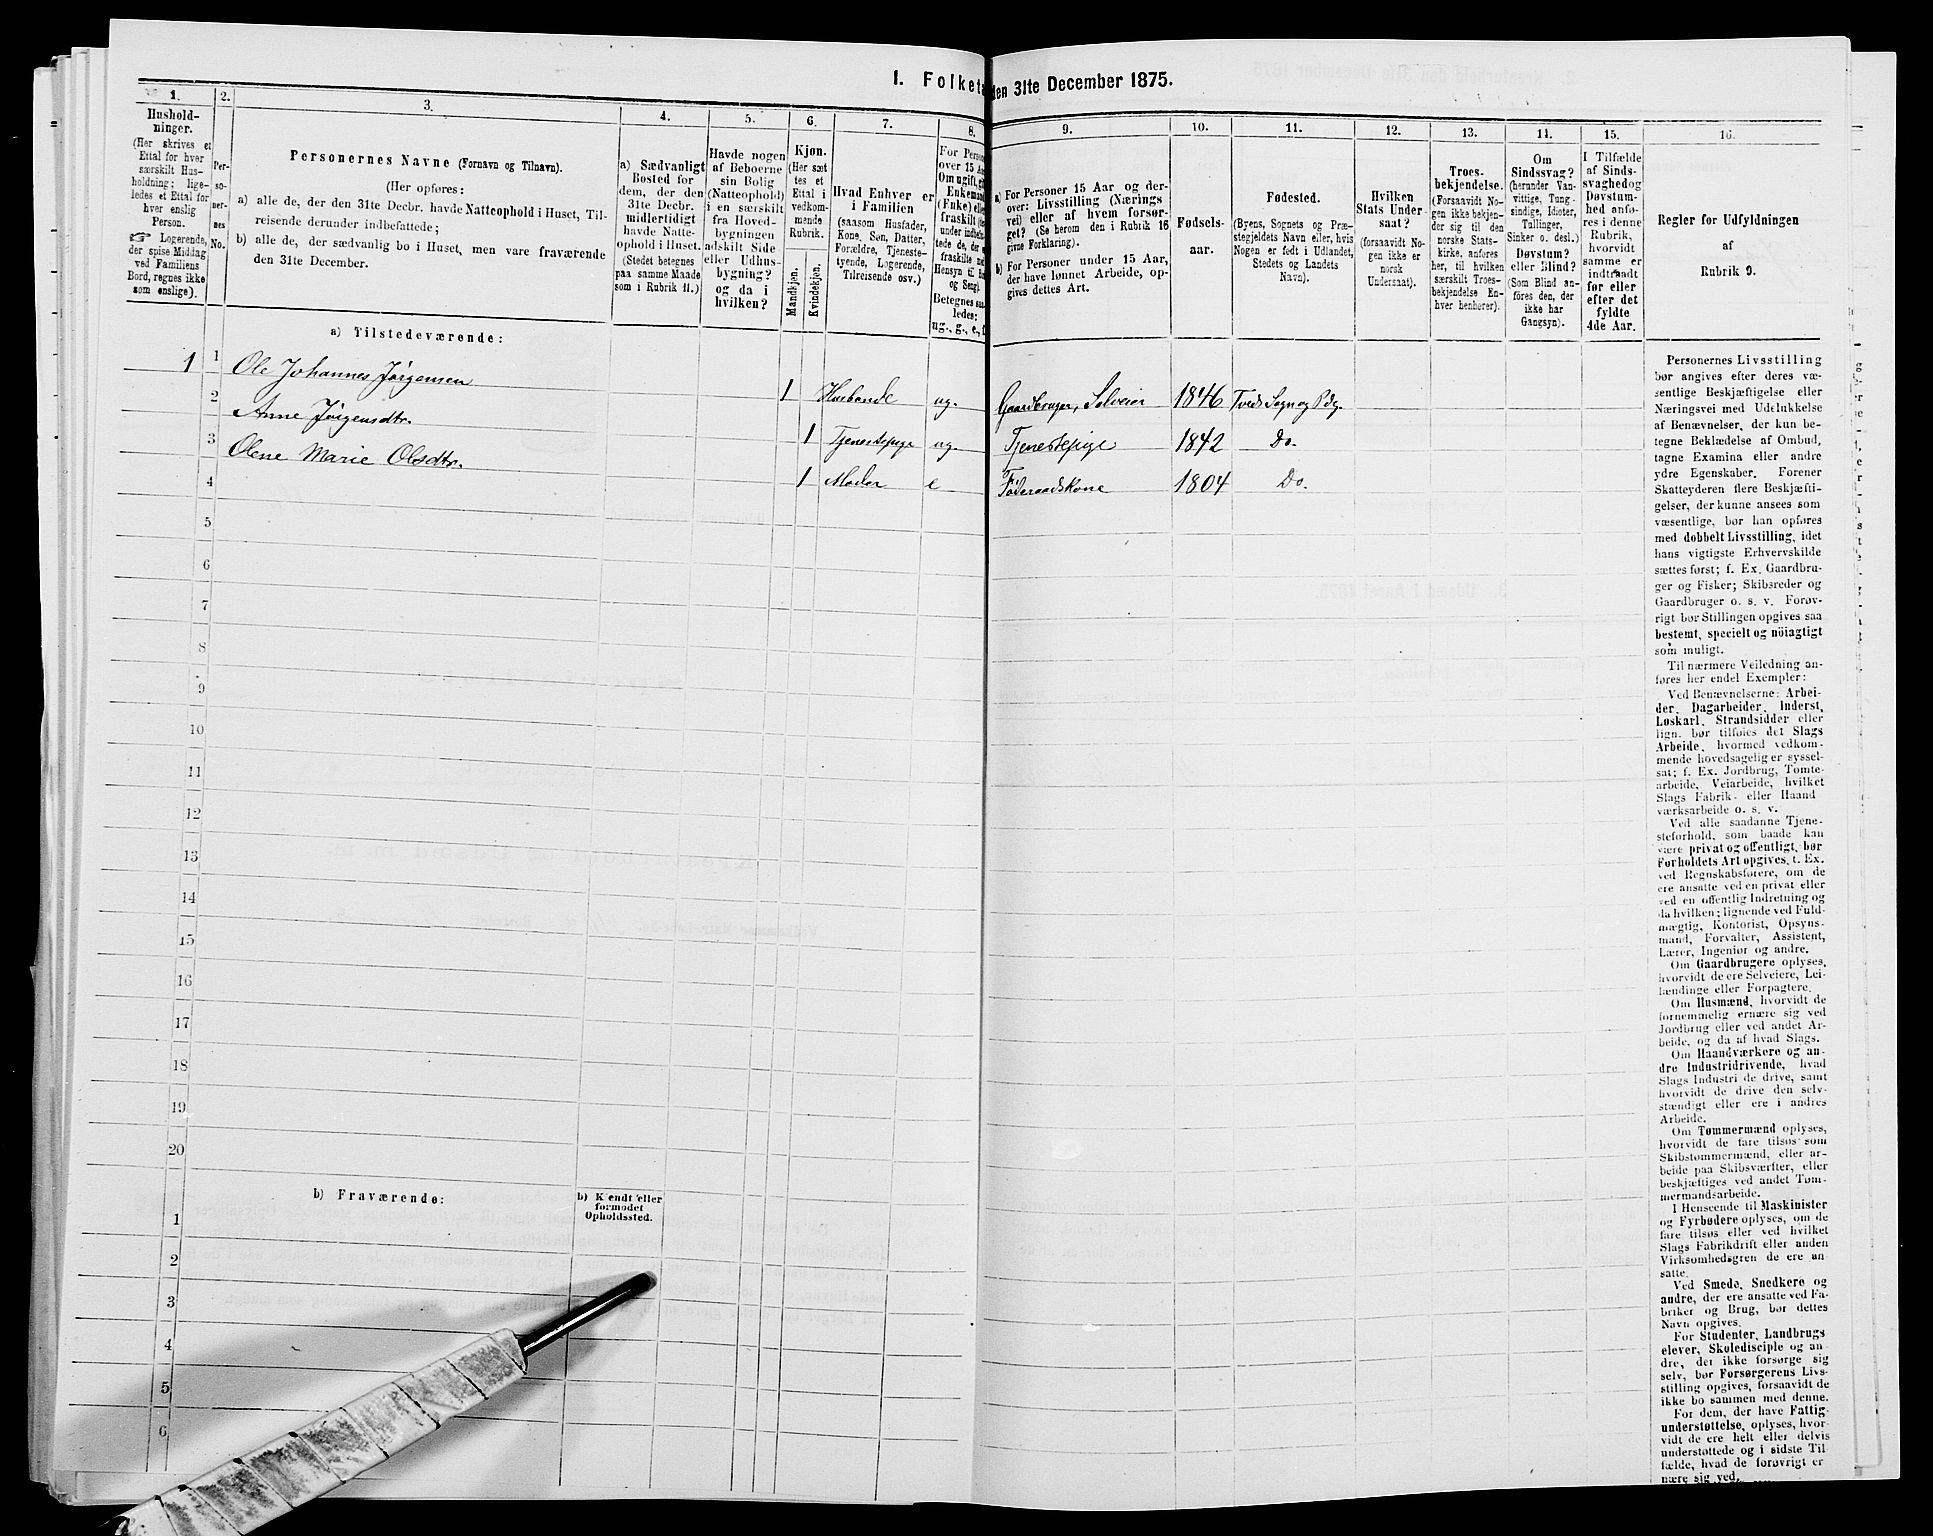 I. Folketæ
den 31te December 1875.
1.
2.
3.
4.
5.
6.
7.
8.
9.
10.
11.
12.
13.
14.
15.
16.
Hushold-
ninger.
(Her skrives et
Ettal for hver
særskilt Hus-
holdning; lige-
ledes et Ettal for
hver enslig
Person.
☞ Logerende,
der spise Middag
ved Familiens
Bord, regnes ikke
som enslige).
Per-
so-
ner-
nes
No.
Personernes Navne (Fornavn og Tilnavn).
(Her opføres:
a) alle de, der den 31te Decbr. havde Natteophold i Huset, Til-
reisende derunder indbefattede;
b) alle de, der sædvanlig bo i Huset, men vare fraværende
den 31te December.
a) Sædvanligt
Bosted for
dem, der den
31te Decbr.
midlertidigt
havde Natte-
ophold i Huset.
(Stedet betegnes
paa samme Maade
som i Rubrik 11.)
Havde nogen
af Beboerne
sin Bolig
(Natteophold)
i en særskilt
fra Hoved-
bygningen
adskilt Side
eller Udhus-
bygning?
og da i
hvilken?
Kjøn.
(Her sæt
tes et
Ettal i
vedkom-
mende
Rubrik.
Mandkjøn.
Kvindekjøn.
Hvad Enhver er
i Familien
(saasom Husfader,
Kone, Søn, Datter,
Forældre, Tjeneste-
tyende, Logerende,
Tilreisende osv.)
For Person
over 15 Aa
Om ugift, gi
Enkemand
(Enke) elle
fraskilt
under indbefat
tede de, der e
fraskilte
Hensyn til
og Seng).
Betegnes saa
ledes:
ug., g., e., f.
a) For Personer 15 Aar og der-
over: Livsstilling (Nærings
vei) eller af hvem forsør-
get? (Se herom den i Rubrik 16
givne Forklaring).
b) For Personer under 15 Aar,
der have lønnet Arbeide, op-
gives dettes Art.
Fødsels-
aar.
Fødested.
(Byens, Sognets og Præ-
stegjeldets Navn eller, hvis
Nogen er født i Udlandet,
Stedets og Landets
Navn).
Hvilken
Stats Under-
saat?
(forsaavidt No-
gen ikke er
norsk
Undersaat).
Troes-
bekjendelse.
(Forsaavidt No-
gen ikke bekjen-
der sig til den
norske Stats-
kirke, anføres
her, til hvilken
særskilt Troes-
bekjendelse En-
hver henhører).
Om
Sindssvag?
(herunder Van-
vittige, Tung-
sindige, Idioter,
Tullinger,
Sinker o. desl.)
Døvstum?
eller Blind?
(Som Blind an-
føres den, der
ikke har
Gangsyn).
I Tilfælde
af Sinds-
svaghed og
Døvstum-
hed anfø-
res i denne
Rubrik,
hvorvidt
samme er
indtraadt
før eller
efter det
fyldte
4de Aar.
Regler for Udfyldningen
af
Rubrik 9.
a) Tilstedeværende:
1 1 Ole Johannes Jörgensen 1 Husbonde ug. Gaardbruger, Selveier 1846 Tveds Sogn og Pdg.
2 Anne Jörgensdtr. 1 Tjenestepige ug. Tjenestepige 1842 Do.
3 Olene Marie Olsdtr. 1 Moder e Föderaadskone 1804 Do.
4
5
6
7
8
9
10
11
12
13
14
15
16
17
18
19
20
b) Fraværende:
b) Kjendt eller
formodet
Opholdssted.
1
2
3
4
5
6
Personernes Livsstilling
bør angives efter deres væ-
sentlige Beskjæftigelse eller
Næringsvei med Udelukkelse
af Benævnelser, der kun be-
tegne Beklædelse af Ombud,
tagne Examina eller andre
ydre Egenskaber. Forener
Skatteyderen flere Beskjæfti-
gelser, der kunne ansees som
væsentlige, bør han opføres
med dobbelt Livsstilling, idet
hans vigtigste Erhvervskilde
sættes først; f. Ex. Gaardbru-
ger og Fisker; Skibsreder og
Gaardbruger o. s. v. Forøv-
rigt bør Stillingen opgives saa
bestemt, specielt og nöiagtigt
som muligt.
Til nærmere Veiledning an-
føres her endel Exempler:
Ved Benævnelserne: Arbei-
der, Dagarbeider, Inderst,
Løskarl, Strandsidder eller
lign. bør tilføies det Slags
Arbeide, hvormed vedkom-
mende hovedsagelig er syssel-
sat; f. Ex. Jordbrug, Tomte-
arbeide, Veiarbeide, hvilket
Slags Fabrik- eller Haand
værksarbeide o. s. v.
Ved alle saadanne Tjene-
steforhold, som baade kan
være privat og offentligt, bør
Forholdets Art opgives, f. Ex.
ved Regnskabsførere, om de
ere ansatte ved en privat eller
ved en offentlig Indretning og
da hvilken; lignende ved Fuld-
mægtig, Kontorist, Opsyns-
mand, Forvalter, Assistent,
Lærer, Ingeniør og andre.
Om Gaardbrugere oplyses,
hvorvidt de ere Selveiere, Lei-
lændinge eller Forpagtere.
Om Husmænd, hvorvidt de
fornemmelig ernære sig ved
Jordbrug eller ved andet Ar-
beide, og da af hvad Slags.
Om Haandværkere og an-
dre Industridrivende, hvad
Slags Industri de drive, samt
hvorvidt de drive den selv-
stændigt eller ere i andres
Arbeide.
Om Tømmermænd oplyses,
hvorvidt de fare tilsøs som
Skibstømmermænd, eller ar-
beide paa Skibsværfter, eller
beskjæftiges ved andet Tøm-
mermandsarbeide.
I Henseende til Maskinister
og Fyrbødere oplyses, om de
fare tilsøs eller ved hvilket
Slags Fabrikdrift eller anden
Virksomhedsgren de ere an-
satte.
Ved Smede, Snedkere og
andre, der ere ansatte ved Fa-
briker og Brug, bør dettes
Navn opgives.
For Studenter, Landbrugs
elever, Skoledisciple og an-
dre, der ikke forsørge sig
selv, bør Forsørgerens Livs-
stilling opgives, forsaavidt de
ikke bo sammen med denne.
For dem, der have Fattig-
understøttelse, oplyses, hvor-
vidt de ere helt eller delvis
understøttede og i sidste Til-
fælde, hvad de forøvrigt er
nære sig ved.